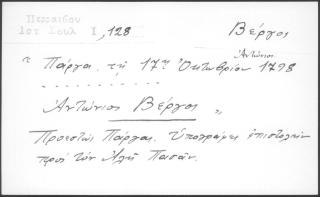 Περραιβού
Ιστ Σουλ Ι, 128
Βέργος
Αντώνιος
" Πάργα τῇ 17ῃ Ὀκτωβρίου 1798
. . . . . . . .
Ἀντώνιος Βέργος "
Προεστὼς Πάργας. Ὑπογράφει ἐπιστολὴν
πρὸς τὸν Ἀλῆ Πασᾶν.